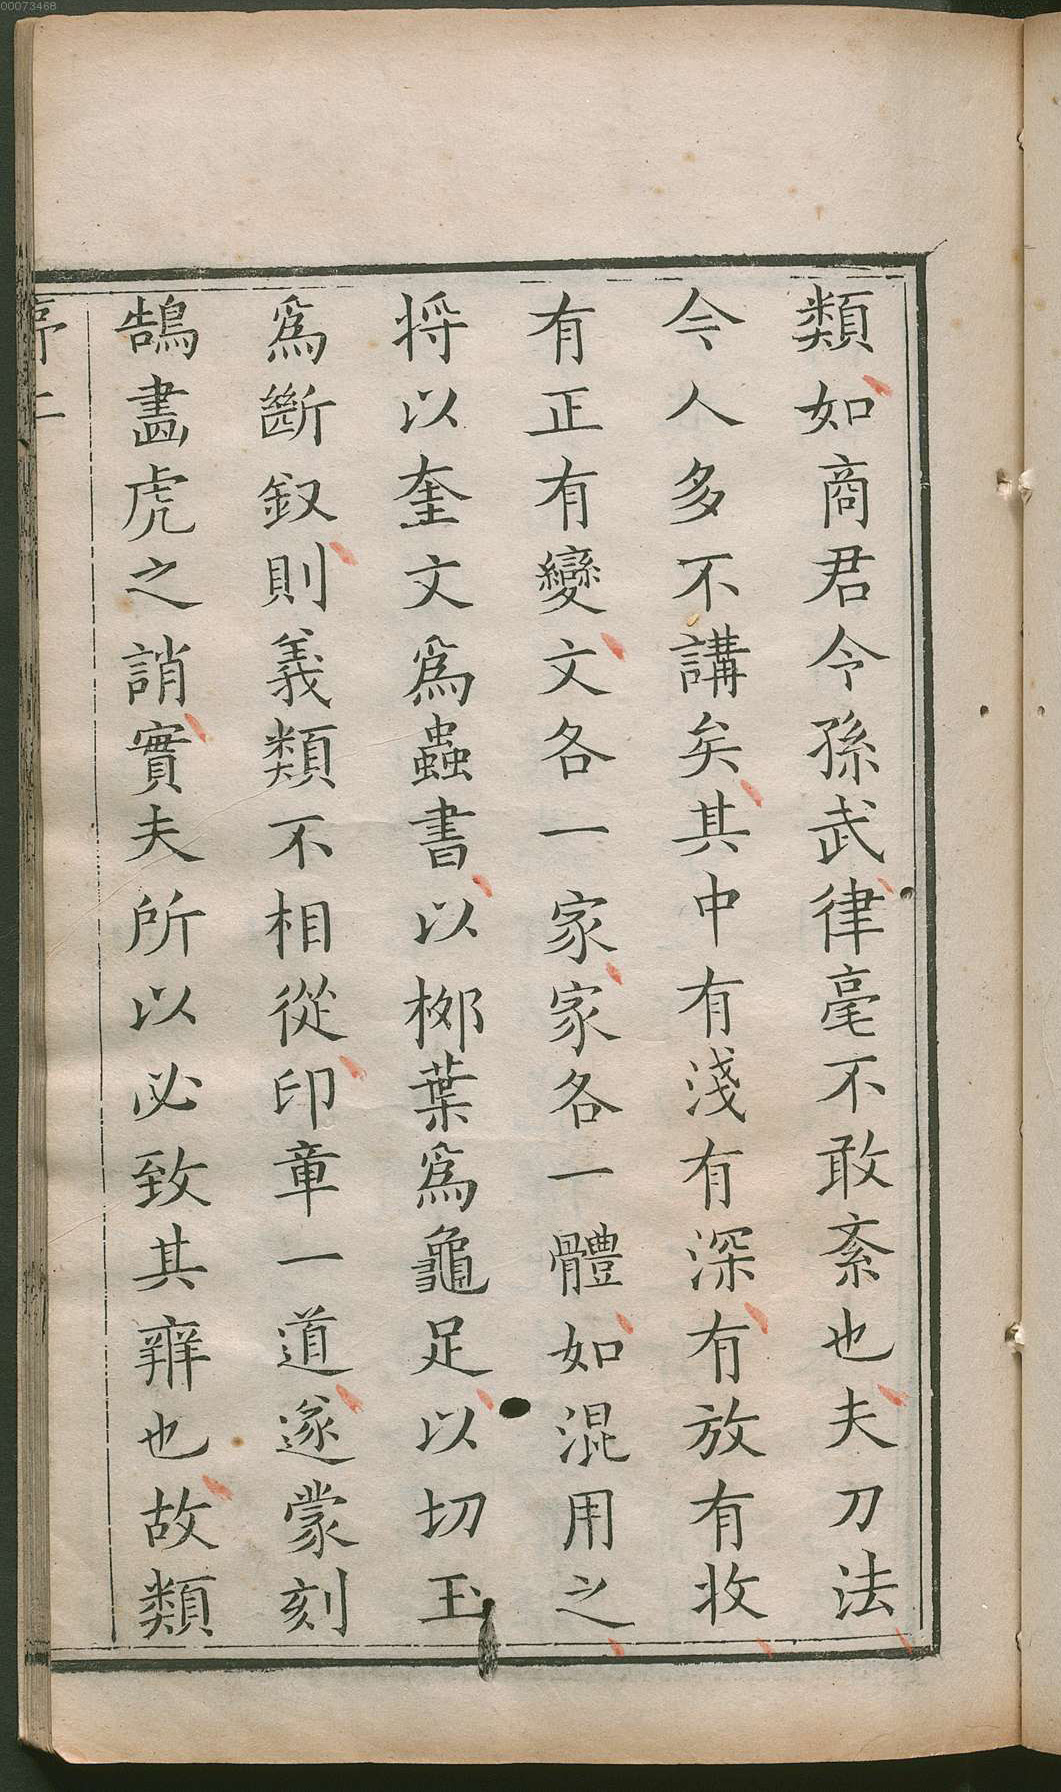 00073468
類如商君令孫武律毫不敢紊也夫刀法
今人多不講矣其中有淺有深有放有收
有正有變文各一家家各一體如混用之
將以奎文爲蟲書以桞葉爲龜足以切玉
爲斷釵則義類不相從印章一道遂蒙刻
鵠畵虎之誚實夫所以必致其辨也故類
序二